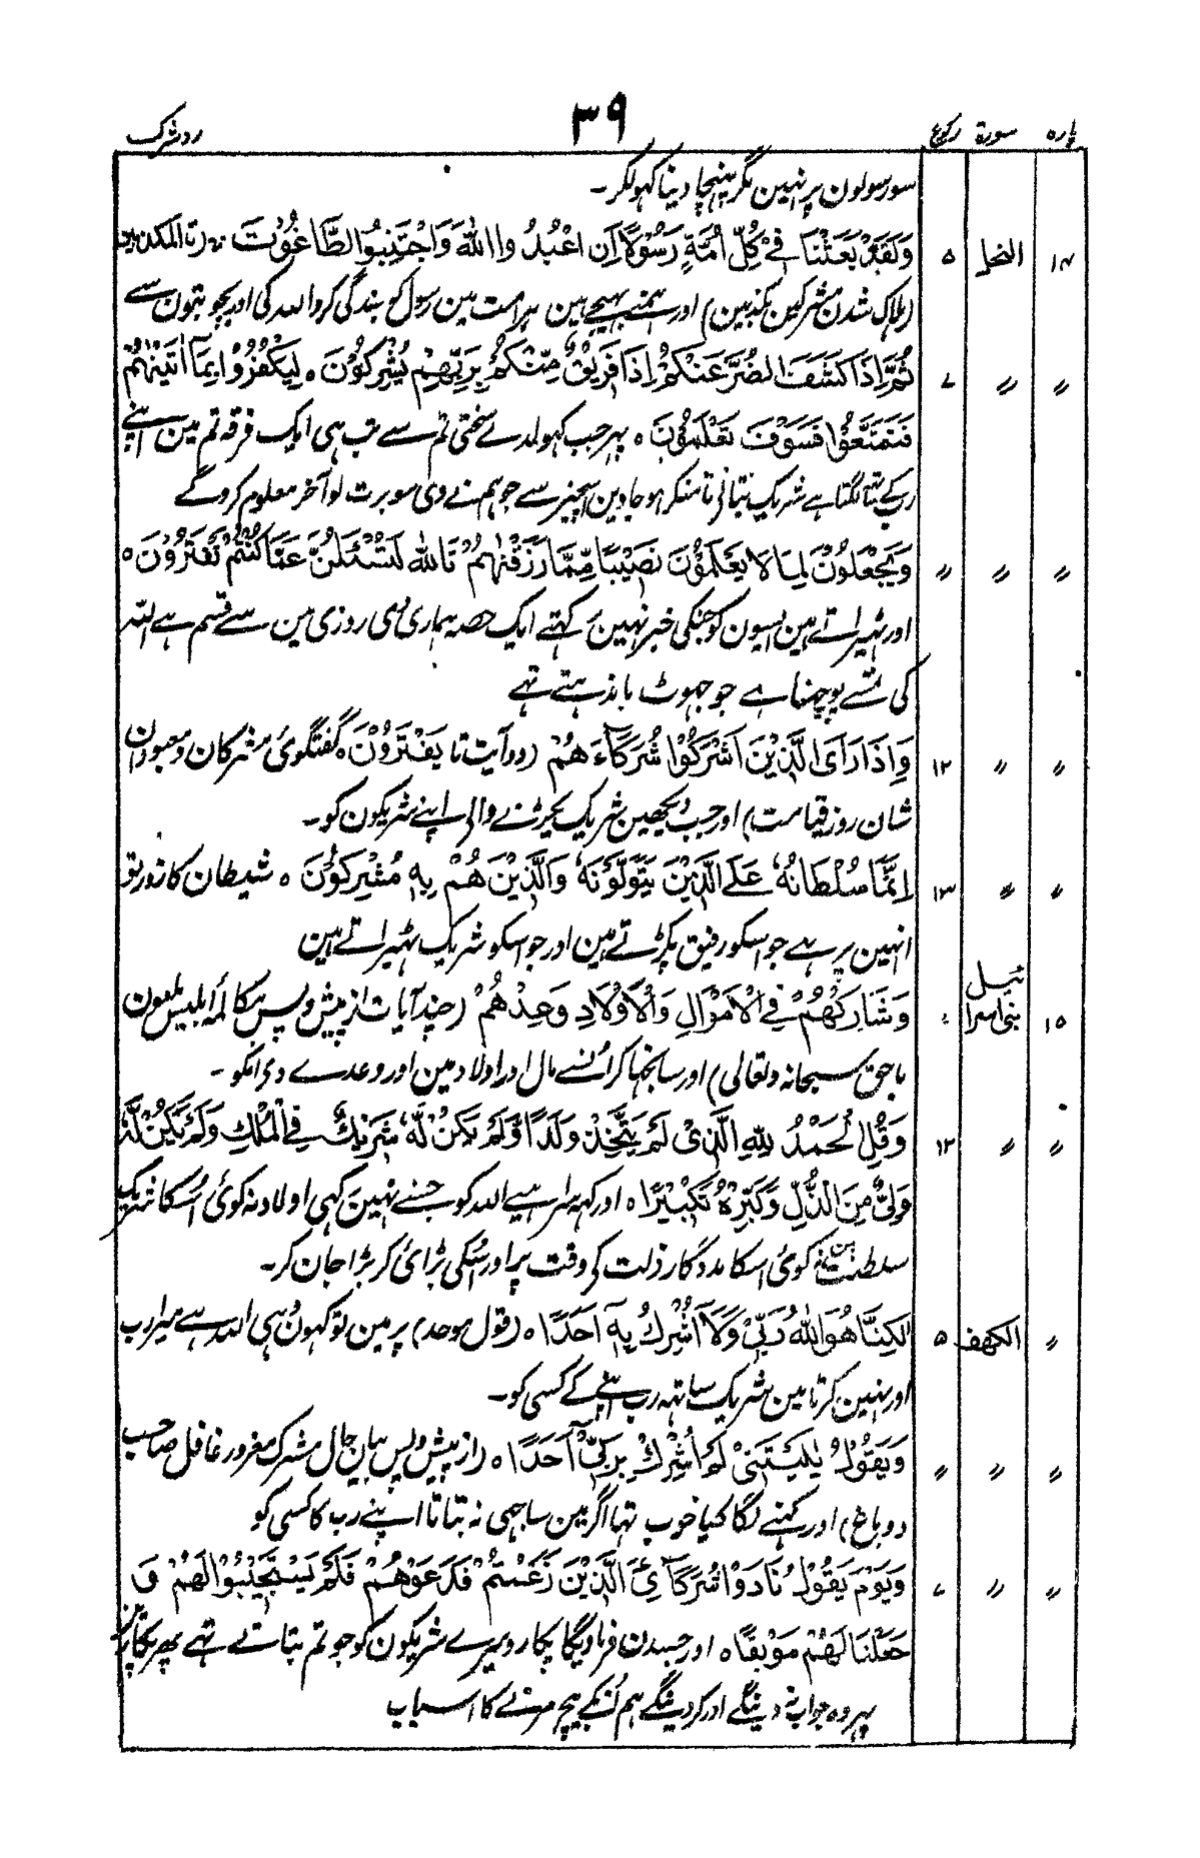 پارہ سورۃ رکوع ۳۹ ردشرک
سورسولون پر نہین مگر پہنچا دینا کہولکر۔
۱۴ النحل ۵ وَلَقَدْ بَعَثْنَا فِیْ کُلِّ اُمَّةٍ رَسُوْلًا اَنِ اعْبُدُ وا اللّٰهَ وَاجْتَنِبُوا الطَّاغُوْتَ
(ہلاک شدن مشرکین مکذبین) اور ہمنے بہیجے ہین ہر امت مین رسول کو بندگی کرو اللہ کی اور بچو بتون سے
〃 〃 ۷ ثُمَّ اِذَا کَشَفَ الضُّرَّ عَنْکُمْ اِذَا فَرِیْقٌ مِّنْکُمْ بِرَبِّهِمْ یُشْرِکُوْنَ ۰ لِیَکْفُرُوْا بِمَآ اٰتَیْنٰهُمْ
فَتَمَتَّعُوْا فَسَوْفَ تَعْلَمُوْنَ ۰ پہر جب کہولدے سختی تم سے تب ہی ایک فرقہ تم مین اپنے
رب کے ساتھ لگتا ہے شریک بتانی تا منکر ہو جاوین اسچیز سے جو ہم نے دی سو برت لو آخر معلوم کروگے
〃 〃 〃 وَیَجْعَلُوْنَ لِمَا لَا یَعْلَمُوْنَ نَصِیْبًا مِّمَّا رَزَقْنٰهُمْ تَاللّٰهِ لَتُسْئَلُنَّ عَمَّا کُنْتُمْ تَفْتَرُوْنَ ۰
اور ٹہیراتے ہین ایسون کو جنکی خبر نہین رکہتے ایک حصہ ہماری دی روزی مین سے قسم ہے اللہ
کی تمسے پوچہنا ہے جو جہوٹ باندہتے تہے
〃 〃 ۱۲ وَاِذَا رَاَی الَّذِیْنَ اَشْرَکُوْا شُرَکَآءَهُمْ (دو آیت تا یَفْتَرُوْنَ ۰ گفتگوئ مشرکان و معبودان
شان روز قیامت) اور جب دیکہین شریک پکڑنے والی اپنے شریکون کو۔
〃 〃 ۱۳ اِنَّمَا سُلْطَانُهٗ عَلَی الَّذِیْنَ یَتَوَلَّوْنَهٗ وَالَّذِیْنَ هُمْ بِهٖ مُشْرِکُوْنَ ۰ شیطان کا زور تو
انہین پر ہے جو اسکو رفیق پکڑتے ہین اور جو اسکو شریک ٹہیراتے ہین
۱۵ بنی اسرائیل وَشَارِکْهُمْ فِی الْاَمْوَالِ وَالْاَوْلَادِ وَعِدْهُمْ (چند آیات از پیش و پس مکالمۂ ابلیس ملعون
با حق سبحانہ وتعالی) اور سانجہا کر انسے مال اور اولاد مین اور وعدے دی انکو۔
〃 〃 ۱۲ وَقُلِ لْحَمْدُ لِلّٰهِ الَّذِیْ لَمْ یَتَّخِذْ وَلَدًا وَّلَمْ یَکُنْ لَّهٗ شَرِیْكٌ فِی الْمُلْكِ وَلَمْ یَکُنْ لَّهٗ
وَلِیٌّ مِنَ الذُّلِّ وَکَبِّرْهُ تَکْبِیْرًا ۰ اور کہہ سراہیے اللہ کو جسنے نہین رکہی اولاد نہ کوئ اُسکا شریک
سلطنت مین نہ کوئ اسکا مددگار ذلت کی وقت پر اور اُسکی بڑائ کر بڑا جان کر۔
〃 الکهف ۵ لٰکِنَّا هُوَ اللّٰهُ رَبِّیْ وَلَآ اُشْرِكُ بِهٖٓ اَحَدًا ۰ (قول موحد) پر مین تو کہون وہی اللہ ہے میرا رب
اور نہین کرتا مین شریک ساتہہ رب اپنے کے کسی کو۔
〃 〃 〃 وَیَقُوْلُ یٰلَیْتَنِیْ لَمْ اُشْرِكْ بِرَبِّیْٓ اَحَدًا ۰ (از پیش و پس بیان حال مشرک مغرور غافل صاحب
دو باغ) اور کہنے لگا کیا خوب تہا اگر مین ساجہی نہ بتاتا اپنے رب کا کسی کو
〃 〃 ۷ وَیَوْمَ یَقُوْلُ نَادُوْا شُرَکَآءِیَ الَّذِیْنَ زَعَمْتُمْ فَدَعَوْهُمْ فَلَمْ یَسْتَجِیْبُوْا لَهُمْ وَ
جَعَلْنَا لَهُمْ مَوْبِقًا ۰ اور جسدن فرماویگا پکارو میرے شریکون کو جو تم بتاتے تہے پہر پکارین گے
پہر وہ جواب نہ دینگے اور کر دینگے ہم اُنکے بیچ مرنے کا اسباب